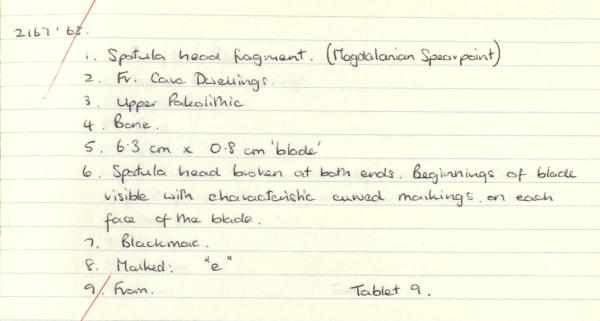 2167'63.
1. Spatula head fragment. (Magdalanian Spearpoint)
2. Fr. Cave Dwellings.
3. Upper Paleolithic
4. Bone.
5. 6.3 cm x 0.8 cm 'blade'
6. Spatula head broken at both ends. Beginnings of blade
visible with characteristic curved markings on each
face of the blade.
7. Blackmore.
8. Marked: "e"
9. From. Tablet 9.